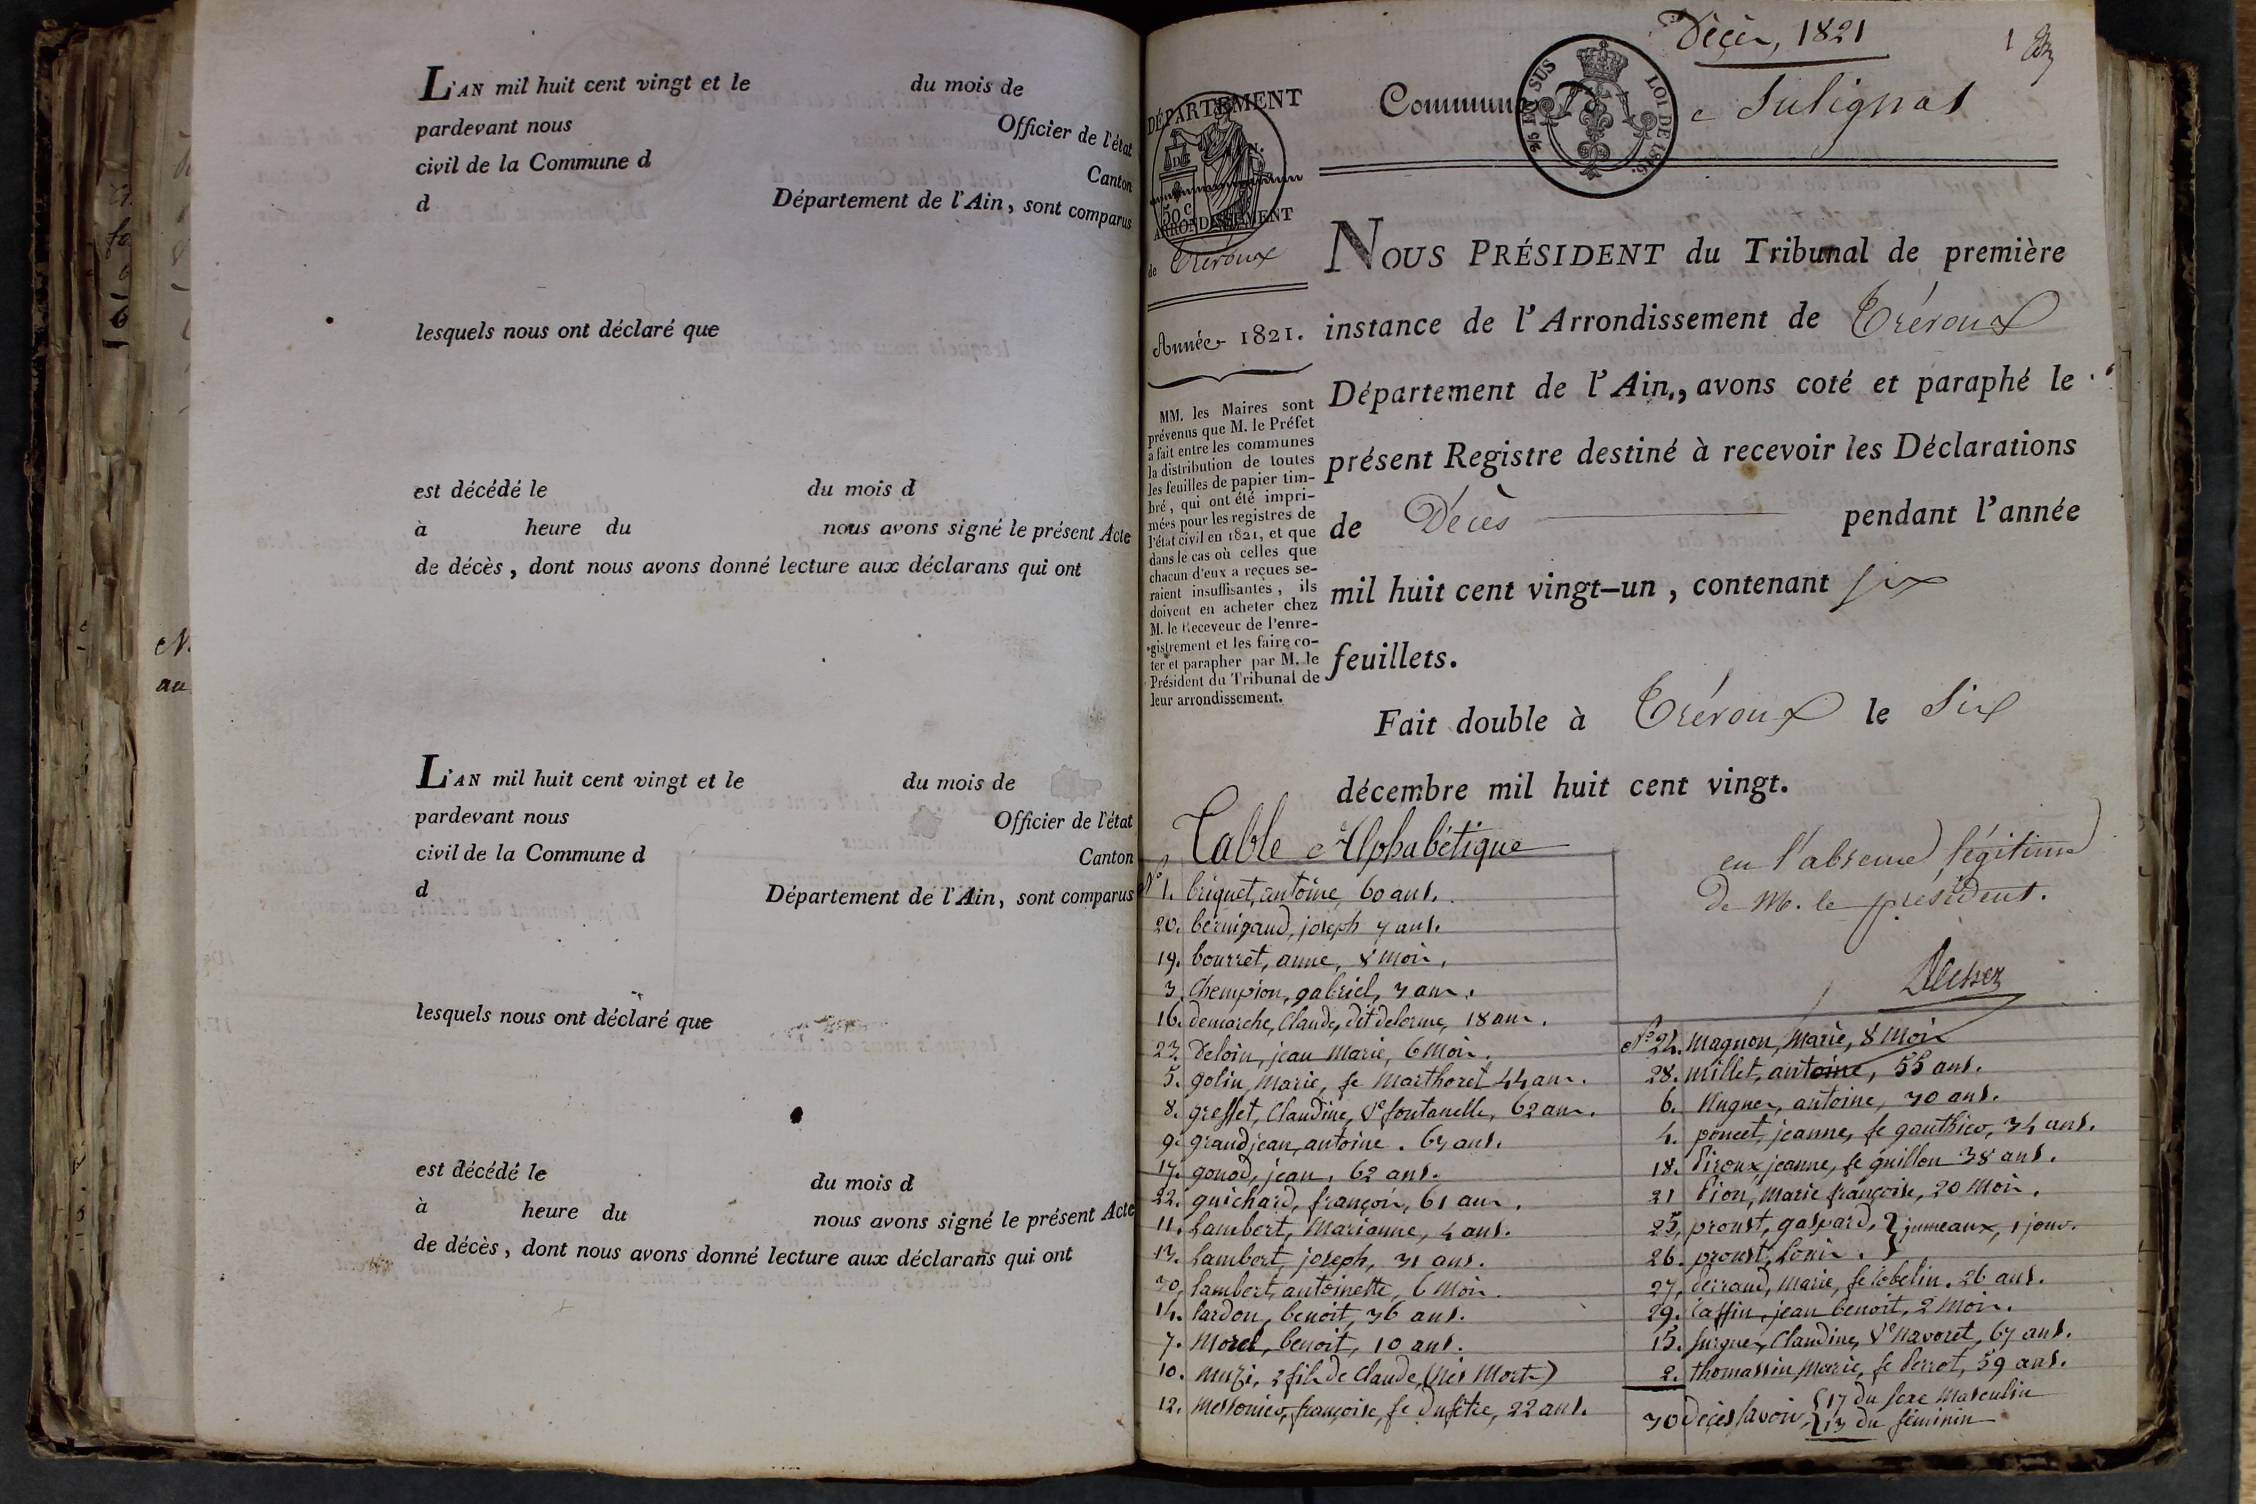 L'AN mil huit cent vingt et le du mois de
pardevant nous Officier de l'état
civil de la Commune d Canton
d Département de l'Ain, sont comparus
lesquels nous ont déclaré que
est décédé le du mois d
à heure du nous avons signé le présent Acte
de décès, dont nous avons donné lecture aux déclarans qui ont
L'AN mil huit cent vingt et le du mois de
pardevant nous Officier de l'état
civil de la Commune d Canton
d Département de l'Ain, sont comparus
lesquels nous ont déclaré que
est décédé le du mois d
à heure du nous avons signé le présent Acte
de décès, dont nous avons donné lecture aux déclarans qui ont
au
Décès, 1821
1
DÉPARTEMENT
50 c
ARRONDISSEMENT
de Trévoux
Année 1821.
MM. les Maires sont
prévenus que M. le Préfet
a fait entre les communes
la distribution de toutes
les feuilles de papier tim-
bré, qui ont été impri-
mées pour les registres de
l'état civil en 1821, et que
dans le cas où celles que
chacun d'eux a reçues se-
raient insuffisantes, ils
doivent en acheter chez
M. le Receveur de l'enre-
gistrement et les faire co-
ter et parapher par M. le
Président du Tribunal de
leur arrondissement.
Commune Sulignat
EN SUS LOI DE 1816.
NOUS PRÉSIDENT du Tribunal de première
instance de l'Arrondissement de Trévoux
Département de l'Ain, avons coté et paraphé le
présent Registre destiné à recevoir les Déclarations
de Décès pendant l'année
mil huit cent vingt-un, contenant six
feuillets.
Fait double à Trévoux le Six
décembre mil huit cent vingt.
en l'absence légitime
de M. le président.
Table Alphabétique
N° 1. briquet, antoine, 60 ans.
20. bernigaud, joseph 7 ans.
19. bourret, anne, 8 Mois.
3. Chempion, gabriel, 3 ans.
16. demarche, Claude, dit delorme, 18 ans.
23. Deloin, jean Marie, 6 Mois.
5. golin, Marie, fe Marthoret 44 ans.
8. greffet, Claudine, Ve fontanelle, 62 ans.
9. grandjean, antoine. 67 ans.
17. gonod, jean, 62 ans.
22. guichard, françois, 61 ans.
11. Lambert, Marianne, 4 ans.
13. Lambert, joseph, 31 ans.
30. Lambert, antoinette, 6 Mois.
14. Lardon, benoit, 36 ans.
7. Morel, benoit, 10 ans.
10. Muzi, 2 fils de Claude, (nés Morts)
12. Messonier, françoise, fe Dufêtre, 22 ans.
N° 24. Magnon, Marie, 8 Mois
28. Millet, antoine, 55 ans.
6. antoine, 70 ans.
4. poncet, jeanne, fe gauthier, 34 ans.
18. Piroux, jeanne, fe guillon 38 ans.
21 Pion, Marie françoise, 20 Mois.
25. proust, gaspard, } jumeaux, 1 jour.
26. proust, Louis.
27. Perraud, Marie, fe 26 ans.
29. jean benoit, 2 Mois.
15. Claudine, Ve Navoret, 67 ans.
2. thomassin Marie, fe Perrot, 59 ans.
30 Décès savoir, { 17 du sexe Masculin
13 du féminin